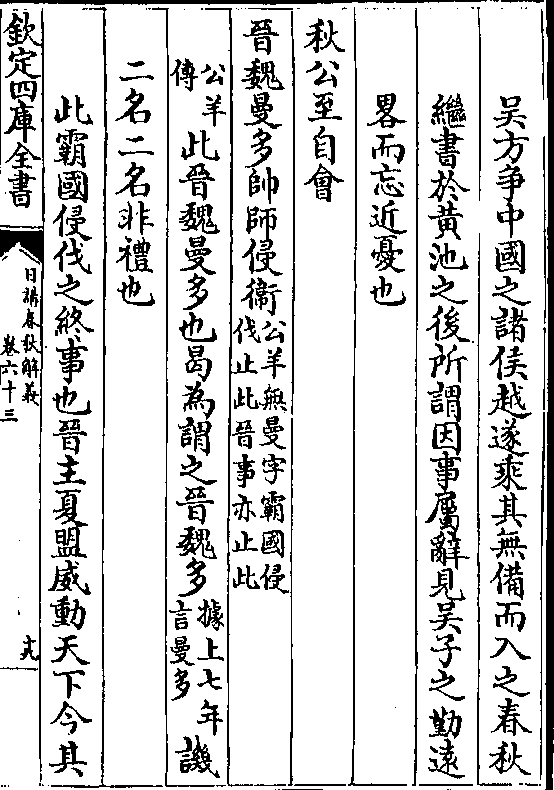 吴方争中國之諸侯越遂乘其無備而入之春秋
繼書於黃池之後所謂因事屬辭見吴子之勤遠
畧而忘近憂也
秋公至自會
晉魏曼多帥師侵衞公羊無曼字霸國侵伐止此晉事亦止此
公羊傳此晉魏曼多也曷為謂之晉魏多據上七年言曼多譏
二名二名非禮也
此霸國侵伐之終事也晉主夏盟威動天下今其
欽定四庫全書
日講春秋解義
卷六十三
十九